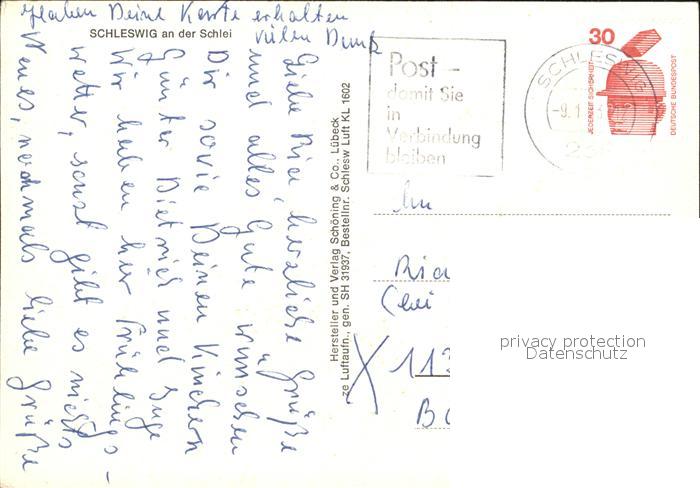 Haben Deine Karte erhalten
vielen Dank
SCHLESWIG an der Schlei
Liebe Ria, herzliche Grüße
und alles Gute wünschen
Dir sowie Deinen Kindern
Günter Dietrich und Inge
Wir haben hier Frühlings-
wetter, sonst gibt es nichts
Neues, nochmals liebe Grüße
Hersteller und Verlag Schöning & Co., Lübeck
ze Luftaufn., gen. SH 31937, Bestellnr. Schlesw Luft KL 1602
Post –
damit Sie
in
Verbindung
bleiben
SCHLESWIG
-9.1
30
JEDERZEIT SICHERHEIT
DEUTSCHE BUNDESPOST
An
Ria
X
privacy protection
Datenschutz